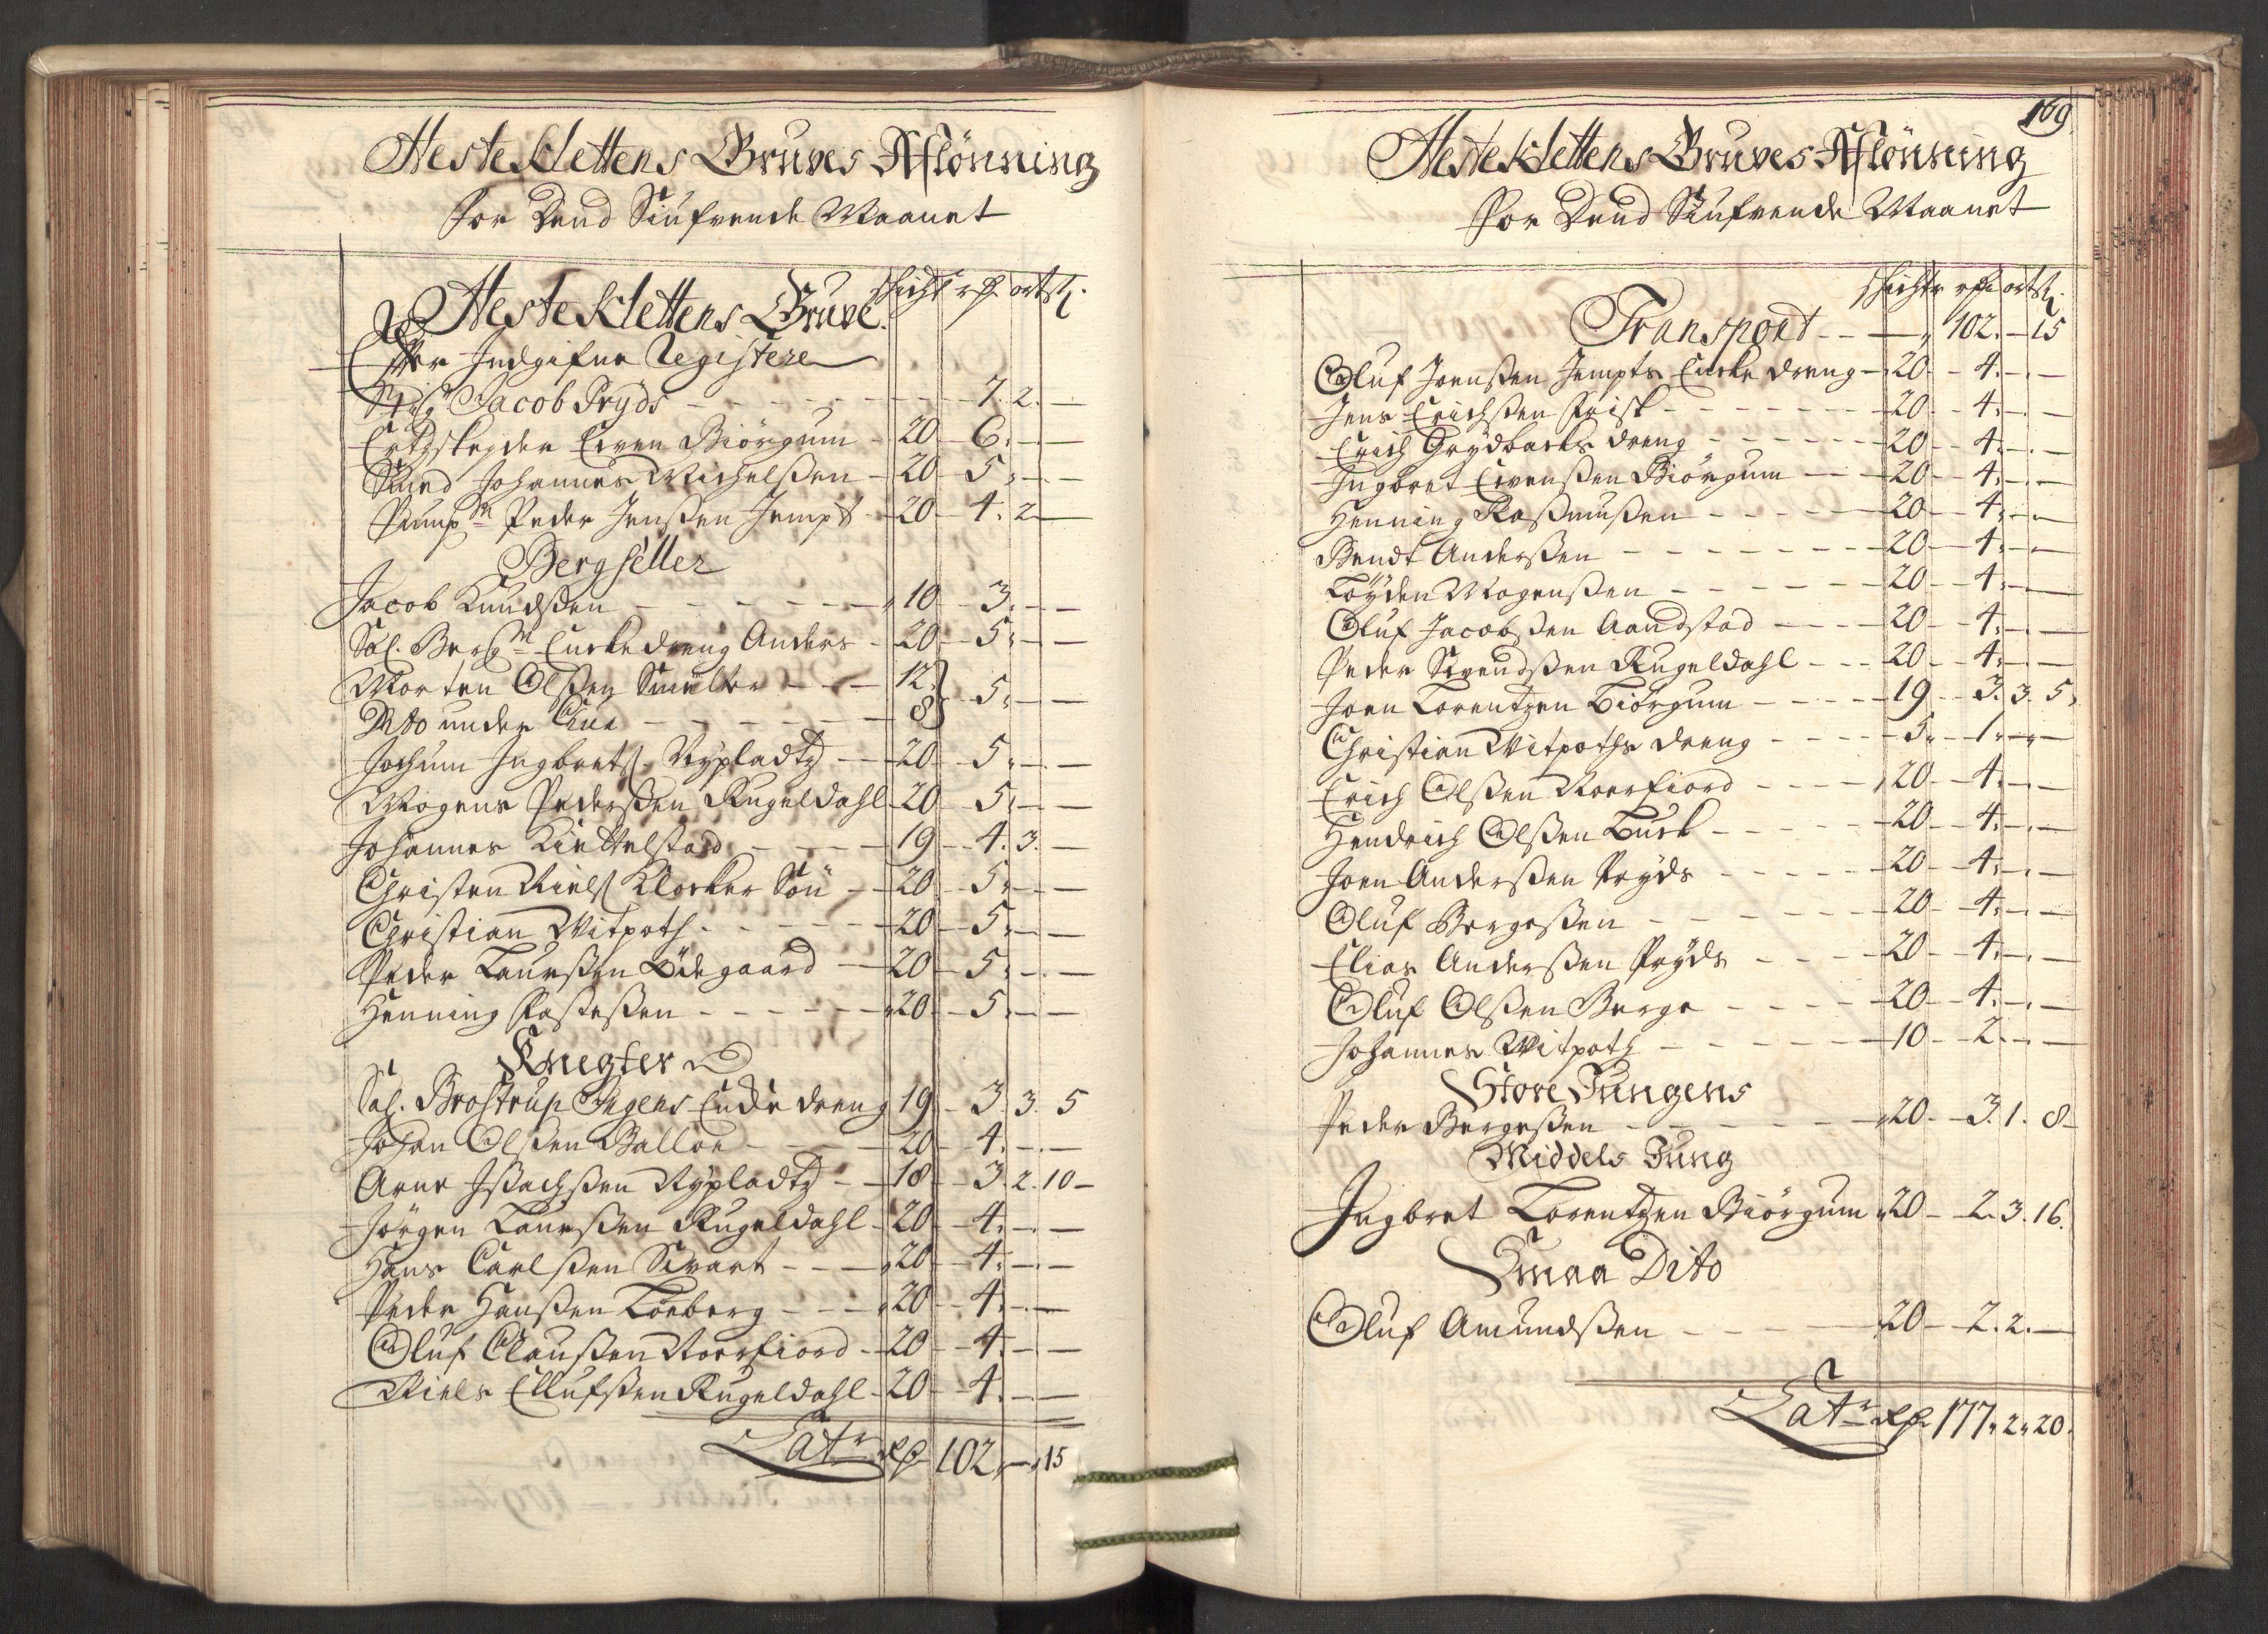 HesteKlettens Gruves Aflönning
for Dend Siufvende Maanet
schicht rd ort s
HesteKlettens Gruve
Efter Indgifne Registere
Stig Jacob Pryds - 7. 2. -
Ertzskeyder Eiven Biörgum - 20 - 6. - -
Smed Johannes Michelsen - 20 - 5. - -
Pump Peder Jensen Jempt - 20 - 4. 2 -
Bergseller
Jacob Knudsen - 10 - 3. - -
Sal. Bergm Enke dreng Anders - 20 - 5. - -
Morten Olsen Smelter - 12
Dito under - 8 } 5. - -
Jochum Ingbrets Nypladtz - 20 - 5. - -
Mogens Pedersen Rugeldahl - 20 - 5. - -
Johannes Kiettelstad - 19 - 4. 3. -
Christen Niels Klocker Sön - 20 - 5. - -
Christian Witpoth - 20 - 5. - -
Peder Laursen Ödegaard - 20 - 5. - -
Henning - 20 - 5. - -
Knegter
Sal. Brostrup Enke dreng 19 - 3 3. 5
Johan Olsen Balloe - 20 - 4. - -
Arne Isachsen Nypladtz - 18 - 3. 2. 10 -
Jörgen Laursen Rugeldahl - 20 - 4. - -
Hans Carlsen Svart - 20 - 4. - -
Peder Hansen Loeberg - 20 - 4. - -
Oluf Clausen Noerfiord - 20 - 4. - -
Niels Ellufsen Rugeldahl - 20 - 4. - -
Lat. rd 102. - 15
169
HesteKlettens Gruves Aflönning
for Dend Siufvende Maanet
schichtr rd ort s
Transport - 102. - 15
Oluf Joensen Jempts Encke dreng - 20 - 4. - -
Jens Erichsen Frisk - 20 - 4. - -
Erich Grydbacks dreng - 20 - 4. - -
Ingbret Eivensen Biörgum - 20 - 4. - -
Henning Rasmusen - 20 - 4. - -
Bendt Andersen - 20 - 4. - -
Töyden Mogensen - 20 - 4. - -
Oluf Jacobsen Aandstad - 20 - 4. - -
Peder Svendsen Rugeldahl - 20 - 4. - -
Joen Lorentzen Biörgum - 19 - 3. 3. 5.
Christian Witpoths dreng - 5 - 1. - -
Erich Olsen Noerfiord - 20 - 4. - -
Hendrich Olsen Buck - 20 - 4. - -
Joen Andersen Pryds - 20 - 4. - -
Oluf Bergesen - 20 - 4. - -
Elias Andersen Pryds - 20 - 4. - -
Oluf Olsen Berge - 20 - 4. - -
Johannes Witpoth - 10 - 2. - -
Store Jungens
Peder Bergesen - 20 - 3. 1. 8 -
Middels Jung
Ingbret Lorentzen Biörgum 20 - 2. 3. 16.
Smaa Dito
Oluf Amundsen - 20 - 2. 2. -
Lat. rd 177. 2. 20.